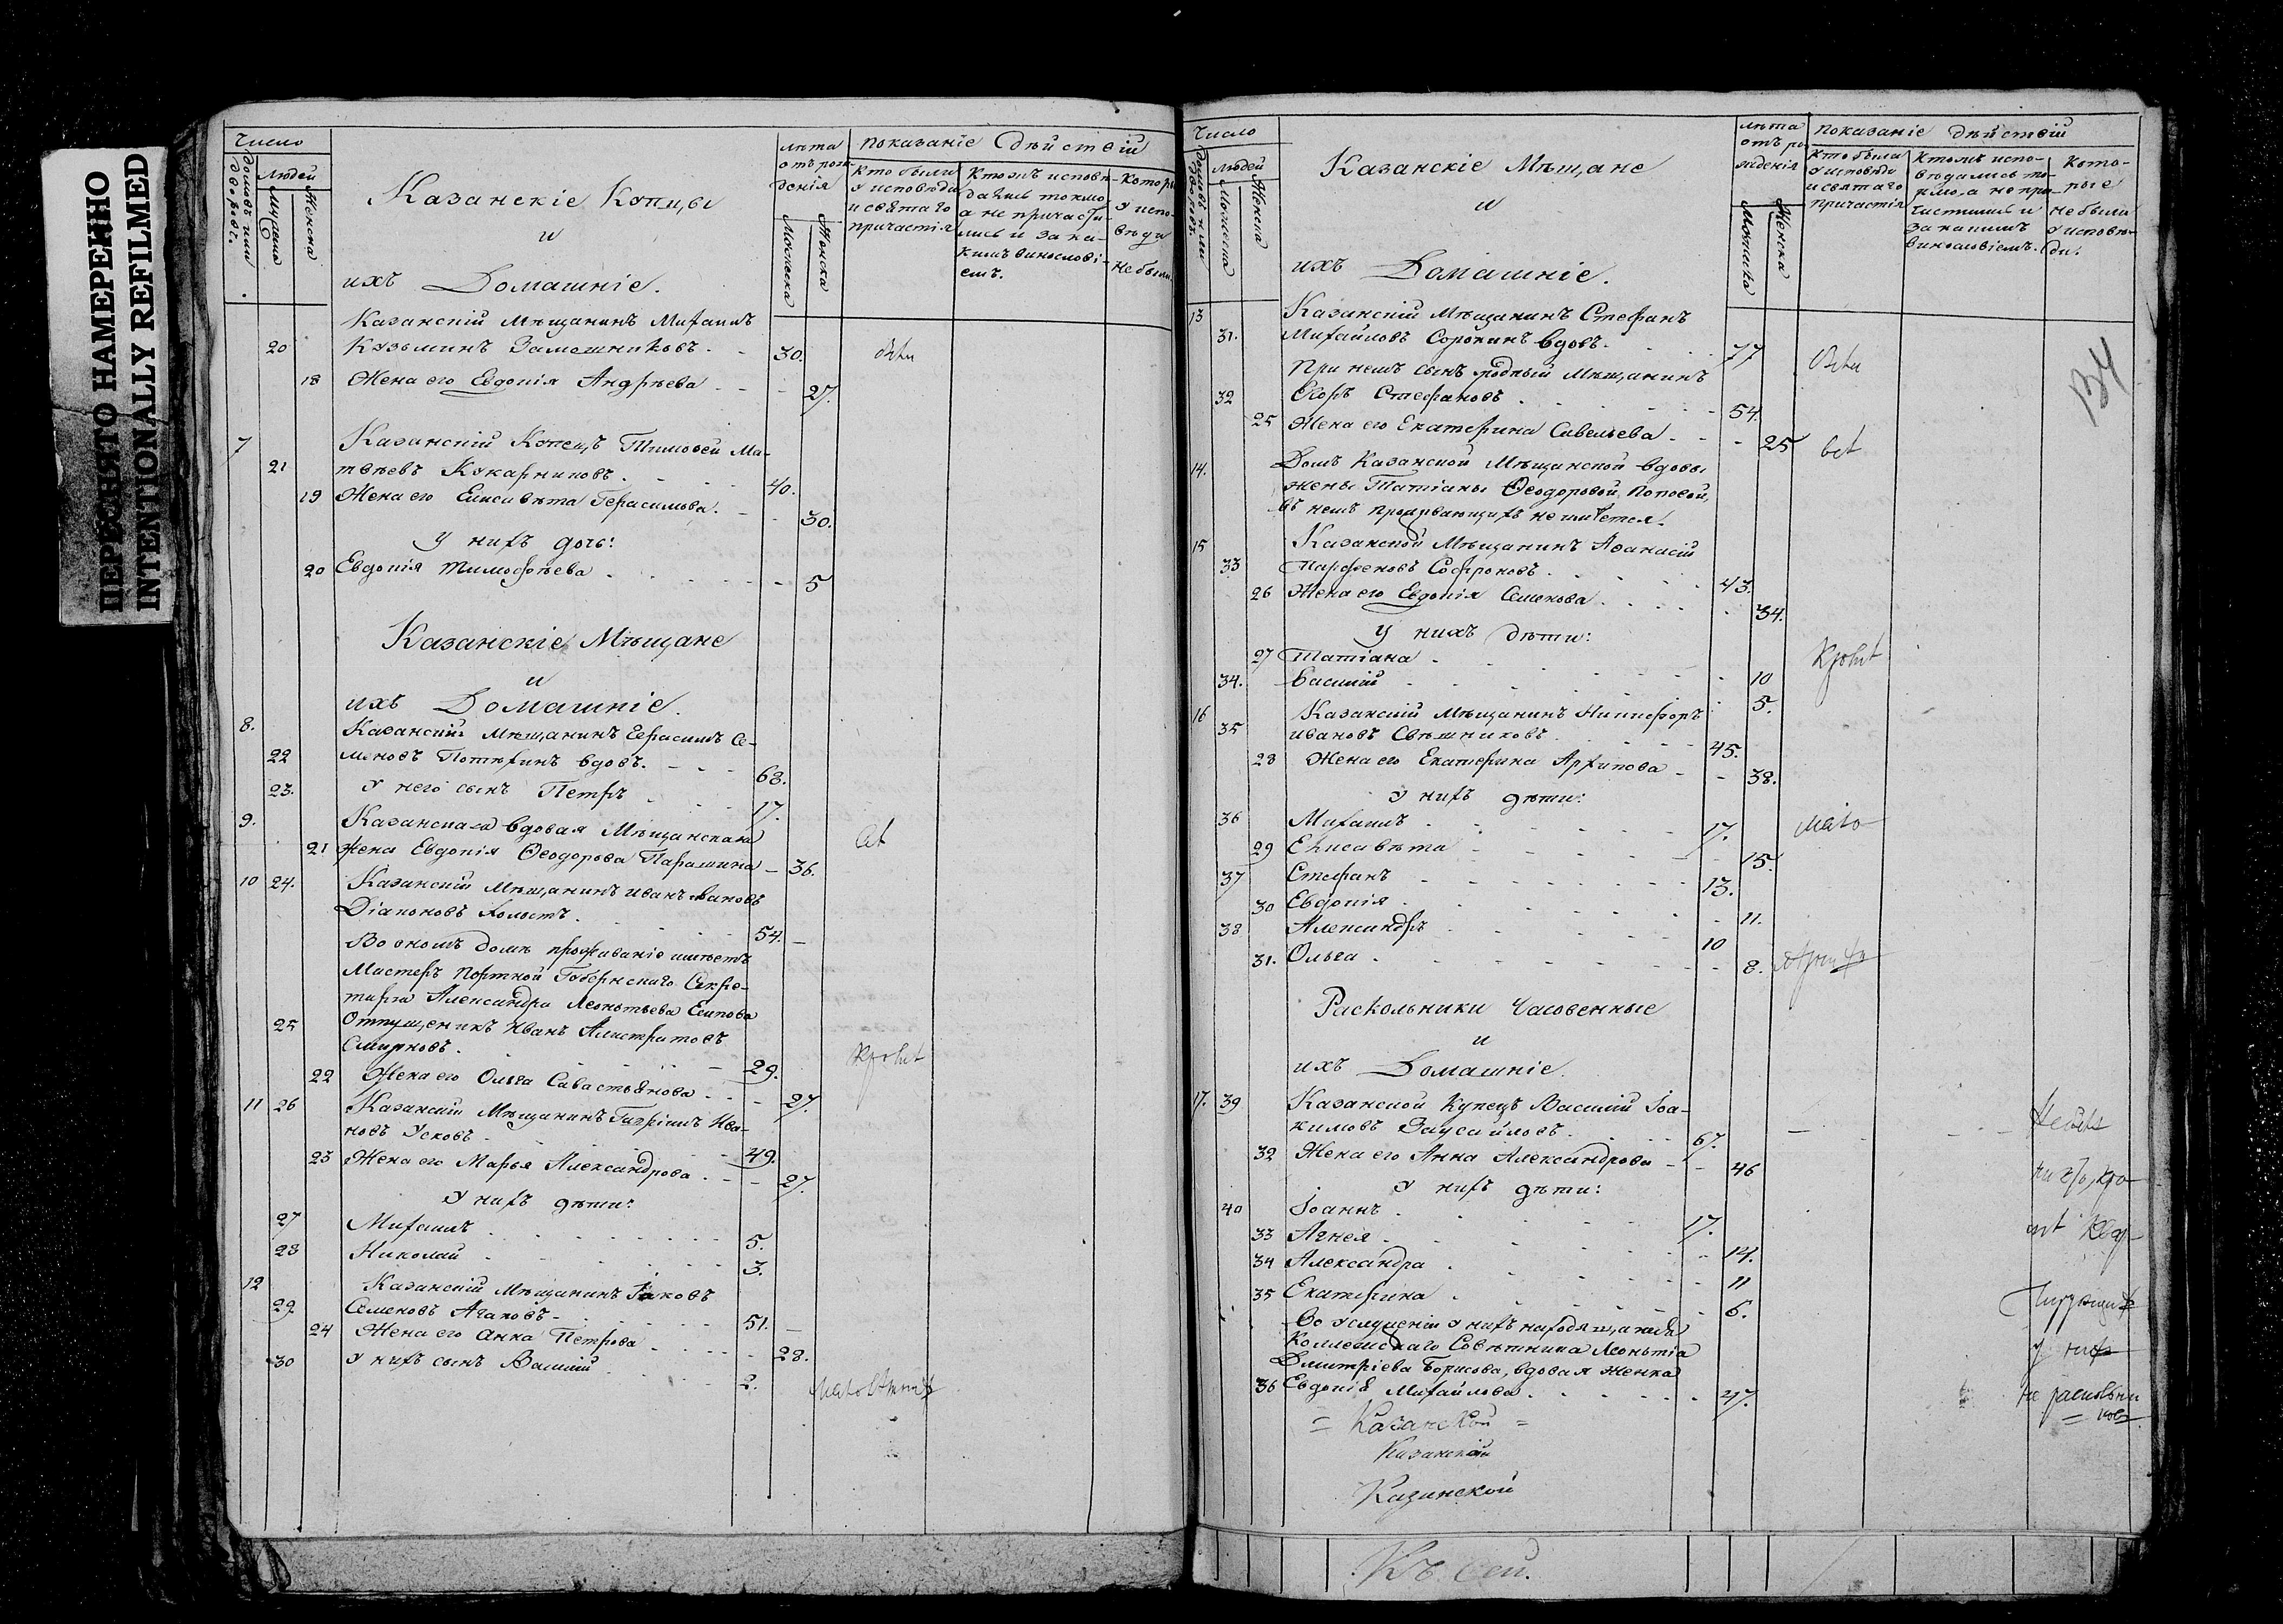 ПЕРЕСНЯТО НАМЕРЕННО
INTENTIONALLY REFILMED
Число
домовъ или дворовъ.
Людей
Мужеска
Женска
Казанскіе Купцы
и
ихъ Домашніе.
лѣта отъ рож-
денія
Мужеска
Женска
показаніе дѣйствій
Кто были
у исповѣди
и святаго
причастія
Кто жъ исповѣ-
дались токмо
а не причасти-
лись и за ка-
кимъ винослові-
емъ.
Которы
у испо-
вѣди
не были
Казанскій Мѣщанинъ Михаилъ
20 Кузьминъ Замошниковъ. 30.
18 Жена его Евдокія Андрѣева 27.
7 Казанскій Купецъ Тимоѳей Ма-
21 твѣевъ Кукарниковъ. 40.
19 Жена его Елисавѣта Герасимова. 30.
У нихъ дочь:
20 Евдокія Тимофѣева 5
Казанскіе Мѣщане
и
ихъ Домашніе.
8. Казанскій Мѣщанинъ Герасимъ Се-
22 меновъ Потѣхинъ вдовъ. 68.
23. У него сынъ Петръ 17.
9. Казанская вдовая Мѣщанская
21 жена Евдокія Ѳеодорова Парашина 36.
10 24. Казанскій Мѣщанинъ Иванъ Ивановъ
Діаконовъ холостъ. 54.
Во ономъ домѣ проживаніе имѣетъ
Мастеръ Портной Губернскаго Секре-
таря Александра Леонтьева Есипова
25 Отпущеникъ Иванъ Алистратовъ
Смирновъ. 29.
22 Жена его Ольга Савастьянова 27.
11 26 Казанскій Мѣщанинъ Гавріилъ Ива-
новъ Усковъ 49.
23 Жена его Марья Александрова 27.
У нихъ дѣти:
27 Михаилъ 5.
28 Николай 3.
12 Казанскій Мѣщанинъ Іаковъ
29 Семеновъ Агаковъ 51.
24 Жена его Анна Петрова 28.
30 У нихъ сынъ Василій 2.
Число
домовъ или дворовъ.
Людей
Мужеска
Женска
Казанскіе Мѣщане
и
ихъ Домашніе.
лѣта
отъ ро-
жденія
Мужеска
Женска
показаніе дѣйствій
Кто были
у исповѣди
и святаго
причастія
Кто жъ испо-
вѣдались то-
кмо, а не при-
частились и
за какимъ
винословіемъ.
Кото-
рые
не были
у исповѣ-
ди.
134
13 Казанскій Мѣщанинъ Стефанъ
31. Михайловъ Сорокинъ вдовъ. 77
При немъ сынъ родный Мѣщанинъ
32 Егоръ Стефановъ 54.
25 Жена его Екатерина Савельева 25
14. Домъ Казанской Мѣщанской вдовы
жены Татіаны Ѳеодоровой Поповой,
въ немъ проживающихъ не имѣется.
15 Казанской Мѣщанинъ Аѳанасій
33 Парѳеновъ Софроновъ 43.
26 Жена его Евдокія Семенова 34.
У нихъ дѣти:
27 Татіана 10
34. Василій 5.
16 Казанскій Мѣщанинъ Никифоръ
35 Ивановъ Свѣшниковъ 45.
28 Жена его Екатерина Архипова 38.
У нихъ дѣти:
36 Михаилъ 17.
29 Елисавѣта 15.
37 Стефанъ 13.
30 Евдокія 11.
38 Александръ 10
31. Ольга 8.
Раскольники Часовенные
и
ихъ Домашніе.
17. 39 Казанской Купецъ Василій Іоа-
кимовъ Заусайловъ. 67.
32 Жена его Анна Александрова 46
У нихъ дѣти:
40 Іоаннъ 17.
33 Агнея 14.
34 Александра 11
35 Екатерина 6.
Во услуженіи у нихъ находящаяся
Коллежскаго Совѣтника Леонтія
Дмитріева Борисова, вдовая женка
36 Евдокія Михайлова 47.
= Казанской =
Казанской
Казанской
Къ сей.